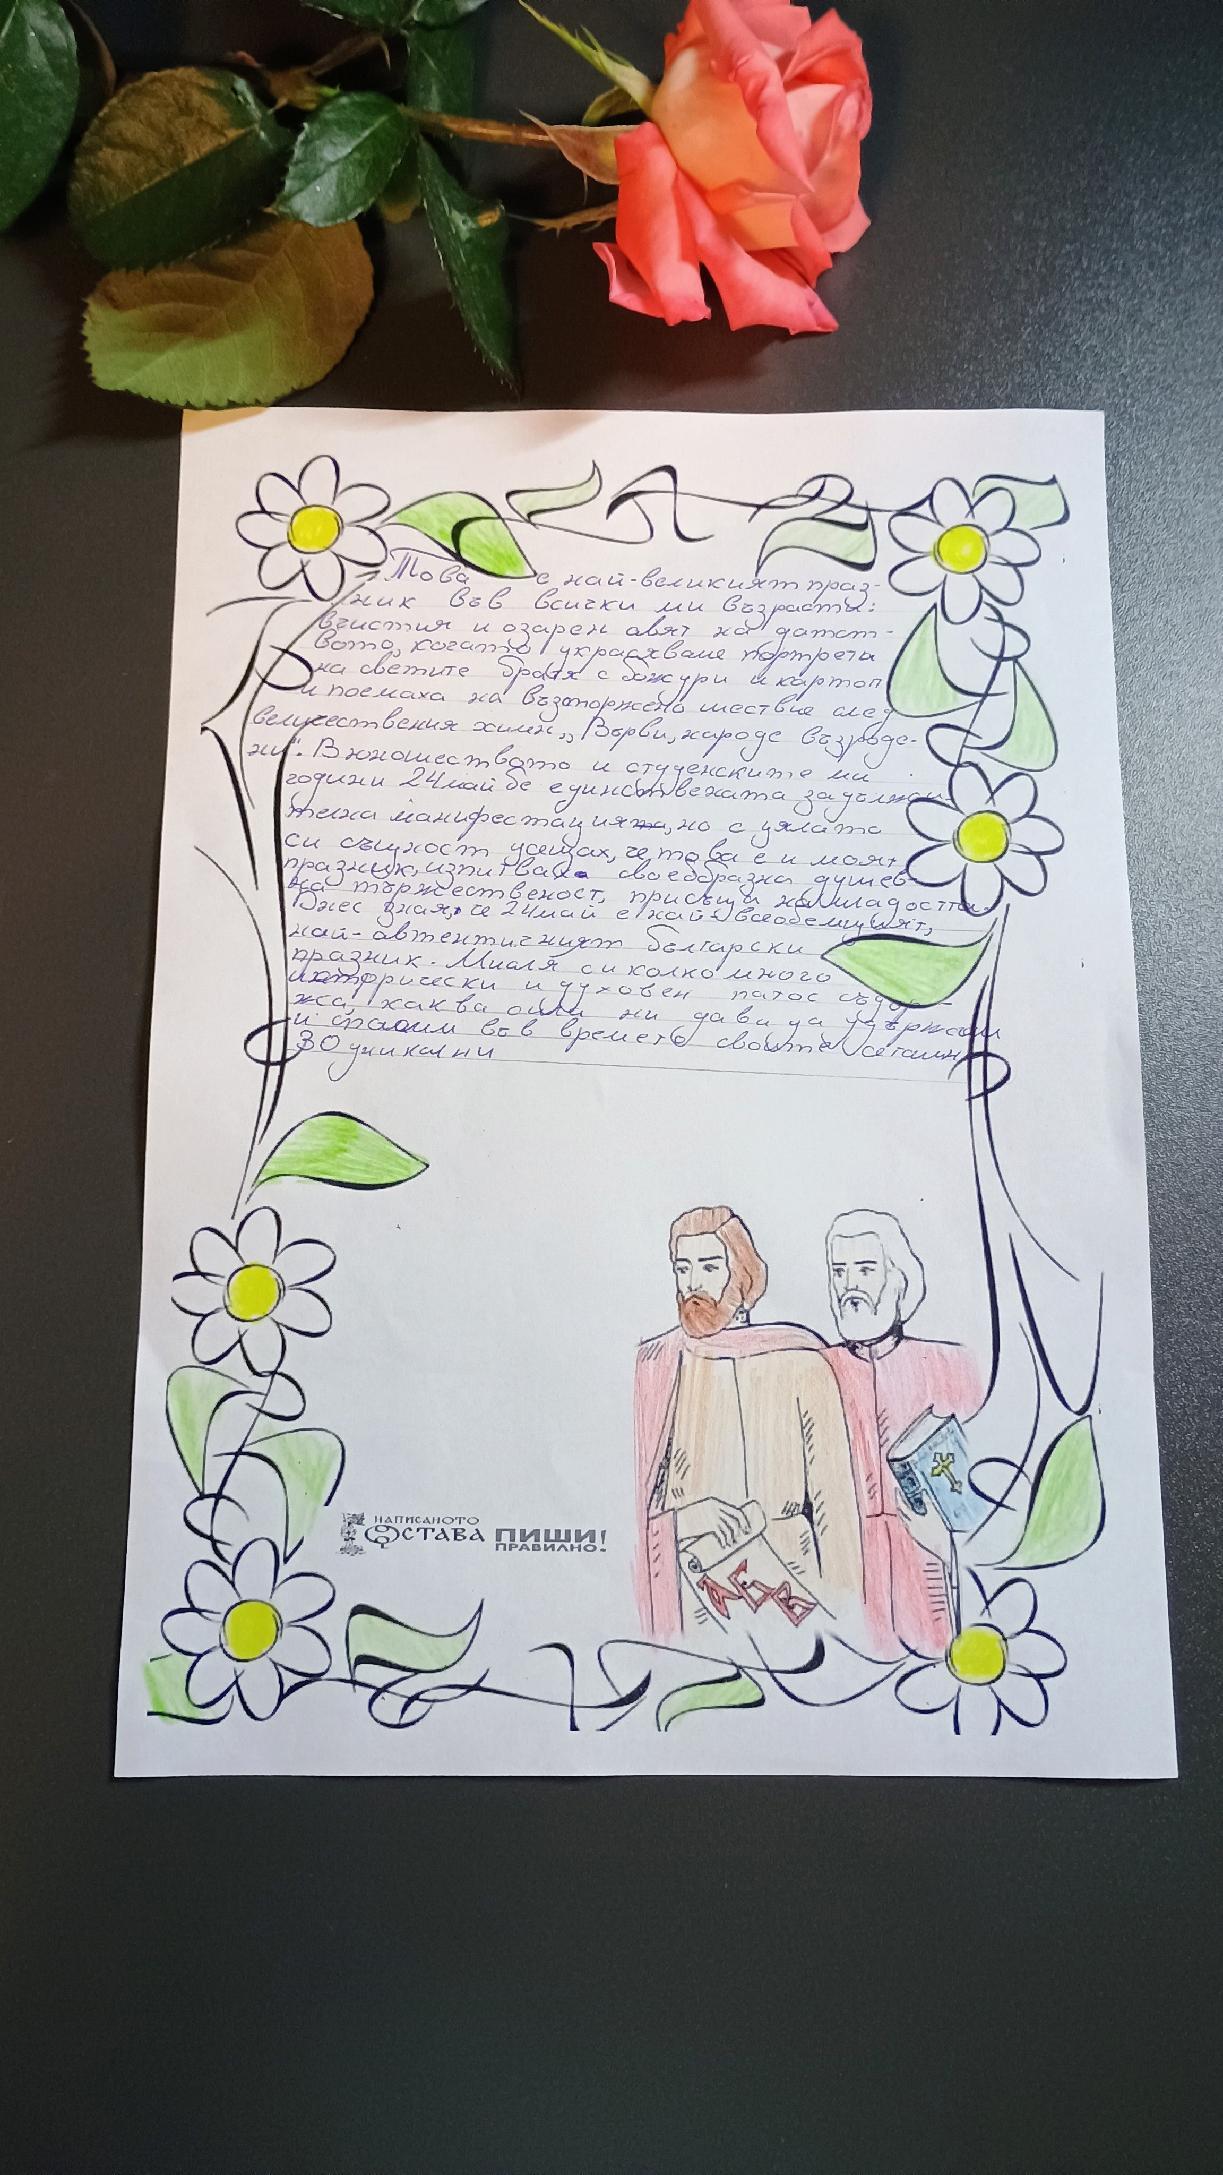 Това е най-великият праз-
ник във всички ми възрасти:
в чистия и озарен свят на детст-
вото, когато украсяваме портрета
на светите братя с божури и картоп
и поемаха на възторжено шествие след
величествения химн „Върви, народе възроде-
ни“. В юношеството и студенските ми
години 24 май бе единствената задължи-
телна манифестация, но с цялата
си същност усещах, че това е и моят
празник, изпитвах своеобразна душев-
на тържественост, присъща на младостта.
Днес зная, че 24 май е най-всеобемущият,
най-автентичният български
празник. Мисля си колко много
исторически и духовен патос съдър-
жа, каква сила ни дава да удържам
и спасим във времето своите сетшни
30 уникални
НАПИСАНОТО
ОСТАВА ПИШИ!
ПРАВИЛНО.
АБВ